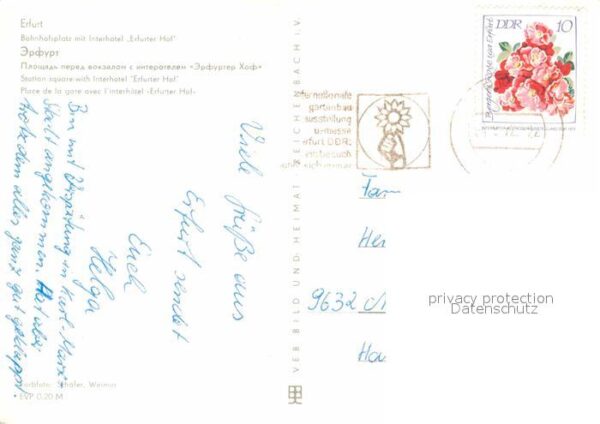 Erfurt
Bahnhofsplatz mit Interhotel „Erfurter Hof"
Эрфурт
Площадь перед вокзалом с интеротелем «Эрфуртер Хоф»
Station square with Interhotel "Erfurter Hof"
Place de la gare avec l'interhôtel «Erfurter Hof»
Viele Grüße aus
Erfurt sendet
Euch
Helga
Bin mit Verspätung in Karl-Marx-
Stadt angekommen. Hat aber
trotzdem alles ganz gut geklappt
Farbfoto: Schäfer, Weimar
• EVP 0,20 M
VEB BILD UND HEIMAT REICHENBACH I. V.
internationale
gartenbau
ausstellung
u-messe
erfurt DDR
DDR 10
Fam
Her
9632
Hau
privacy protection
Datenschutz